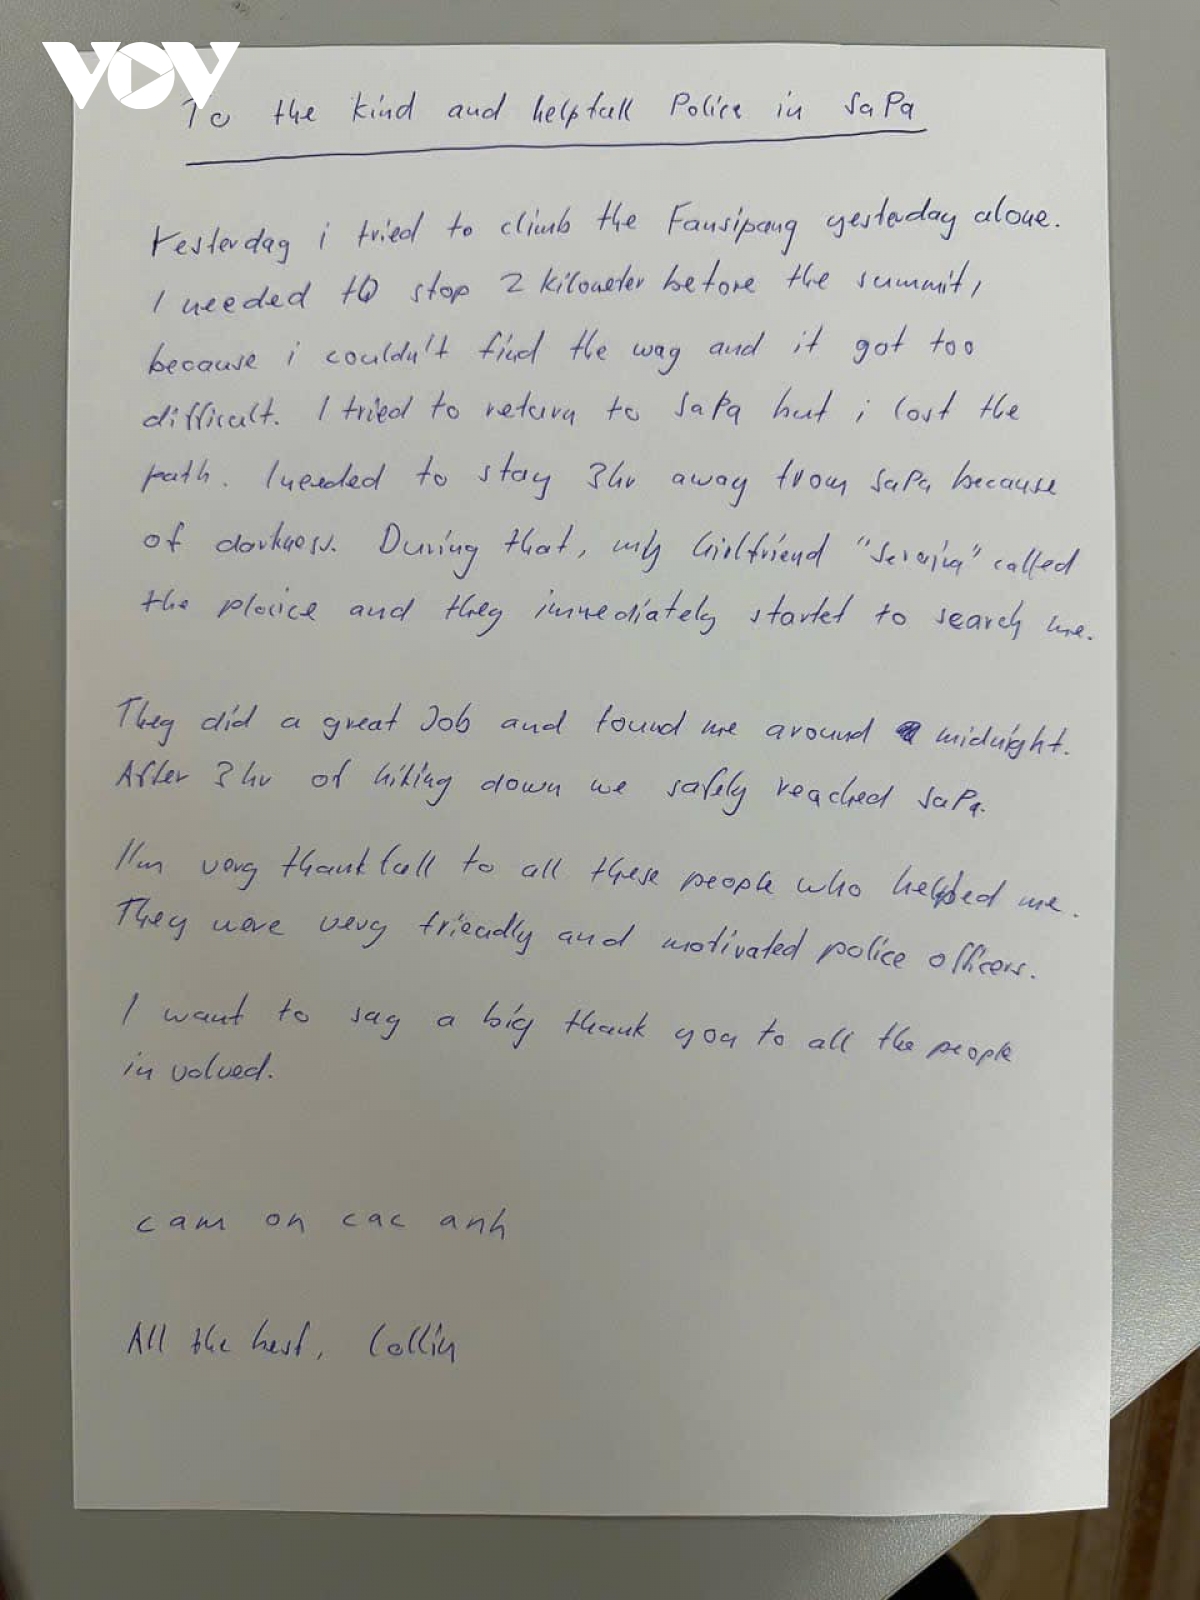 VOV
To the kind and helpfull Police in SaPa
Yesterday i tried to climb the Fansipang yesterday alone.
I needed to stop 2 kilometer before the summit,
because i couldn't find the way and it got too
difficult. I tried to return to SaPa but i lost the
path. I needed to stay 3hr away from SaPa because
of darkness. During that, my Girlfriend " " called
the ploiice and they immediately startet to search me.
They did a great Job and found me around midnight.
After 3hr of hiking down we safely reached SaPa.
I'm very thankfull to all these people who helped me.
They were very friendly and motivated police officers.
I want to say a big thank you to all the people
involved.
cam on cac anh
All the best, Collin